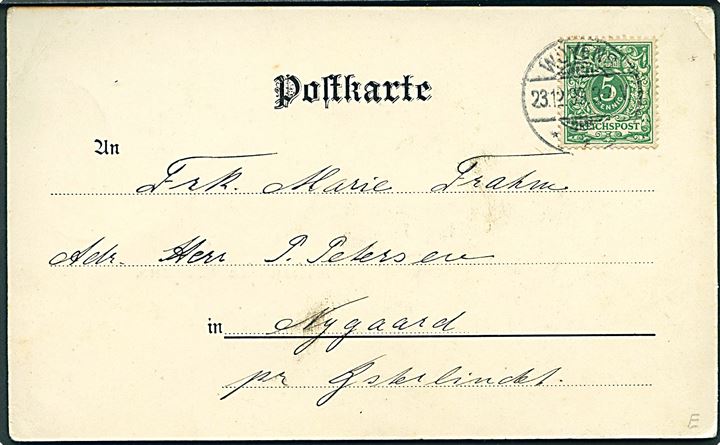 Postkarte
5
PFENNIG
REICHSPOST
23.12.
An
Frk. Marie Frahm
Adr. Herr P. Petersen
in Nygaard
pr Østerlindet.
E